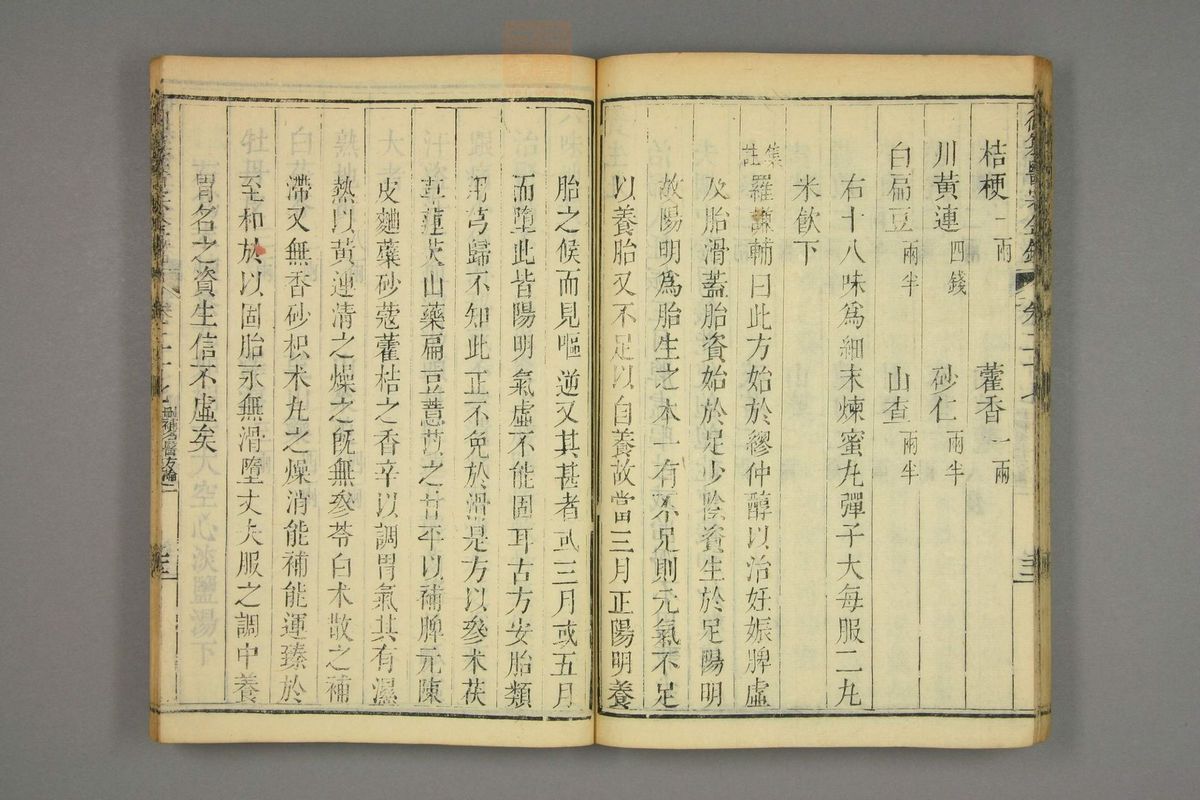 桔梗一兩 藿香一兩
川黃連四錢 砂仁一兩半
白扁豆一兩半 山查一兩半
右十八味爲細末煉蜜丸彈子大每服二丸
米飲下
集註羅謙輔曰此方始於繆仲醇以治妊娠脾虛
及胎滑蓋胎資始於足少陰資生於足陽明
故陽明爲胎生之本一有不足則元氣不足
以養胎又不足以自養故當三月正陽明養
胎之候而見嘔逆又其甚者或三月或五月
而墮此皆陽明氣虛不能固耳古方安胎類
用芎歸不知此正不免於滑是方以參朮茯
草蓮芡山藥扁豆薏苡之甘平以補脾元陳
皮麯蘗砂蔻藿桔之香辛以調胃氣其有濕
熱以黃連清之燥之旣無參苓白朮散之補
滯又無香砂枳朮丸之燥消能補能運臻於
至和於以固胎永無滑墮丈夫服之調中養
胃名之資生信不虛矣